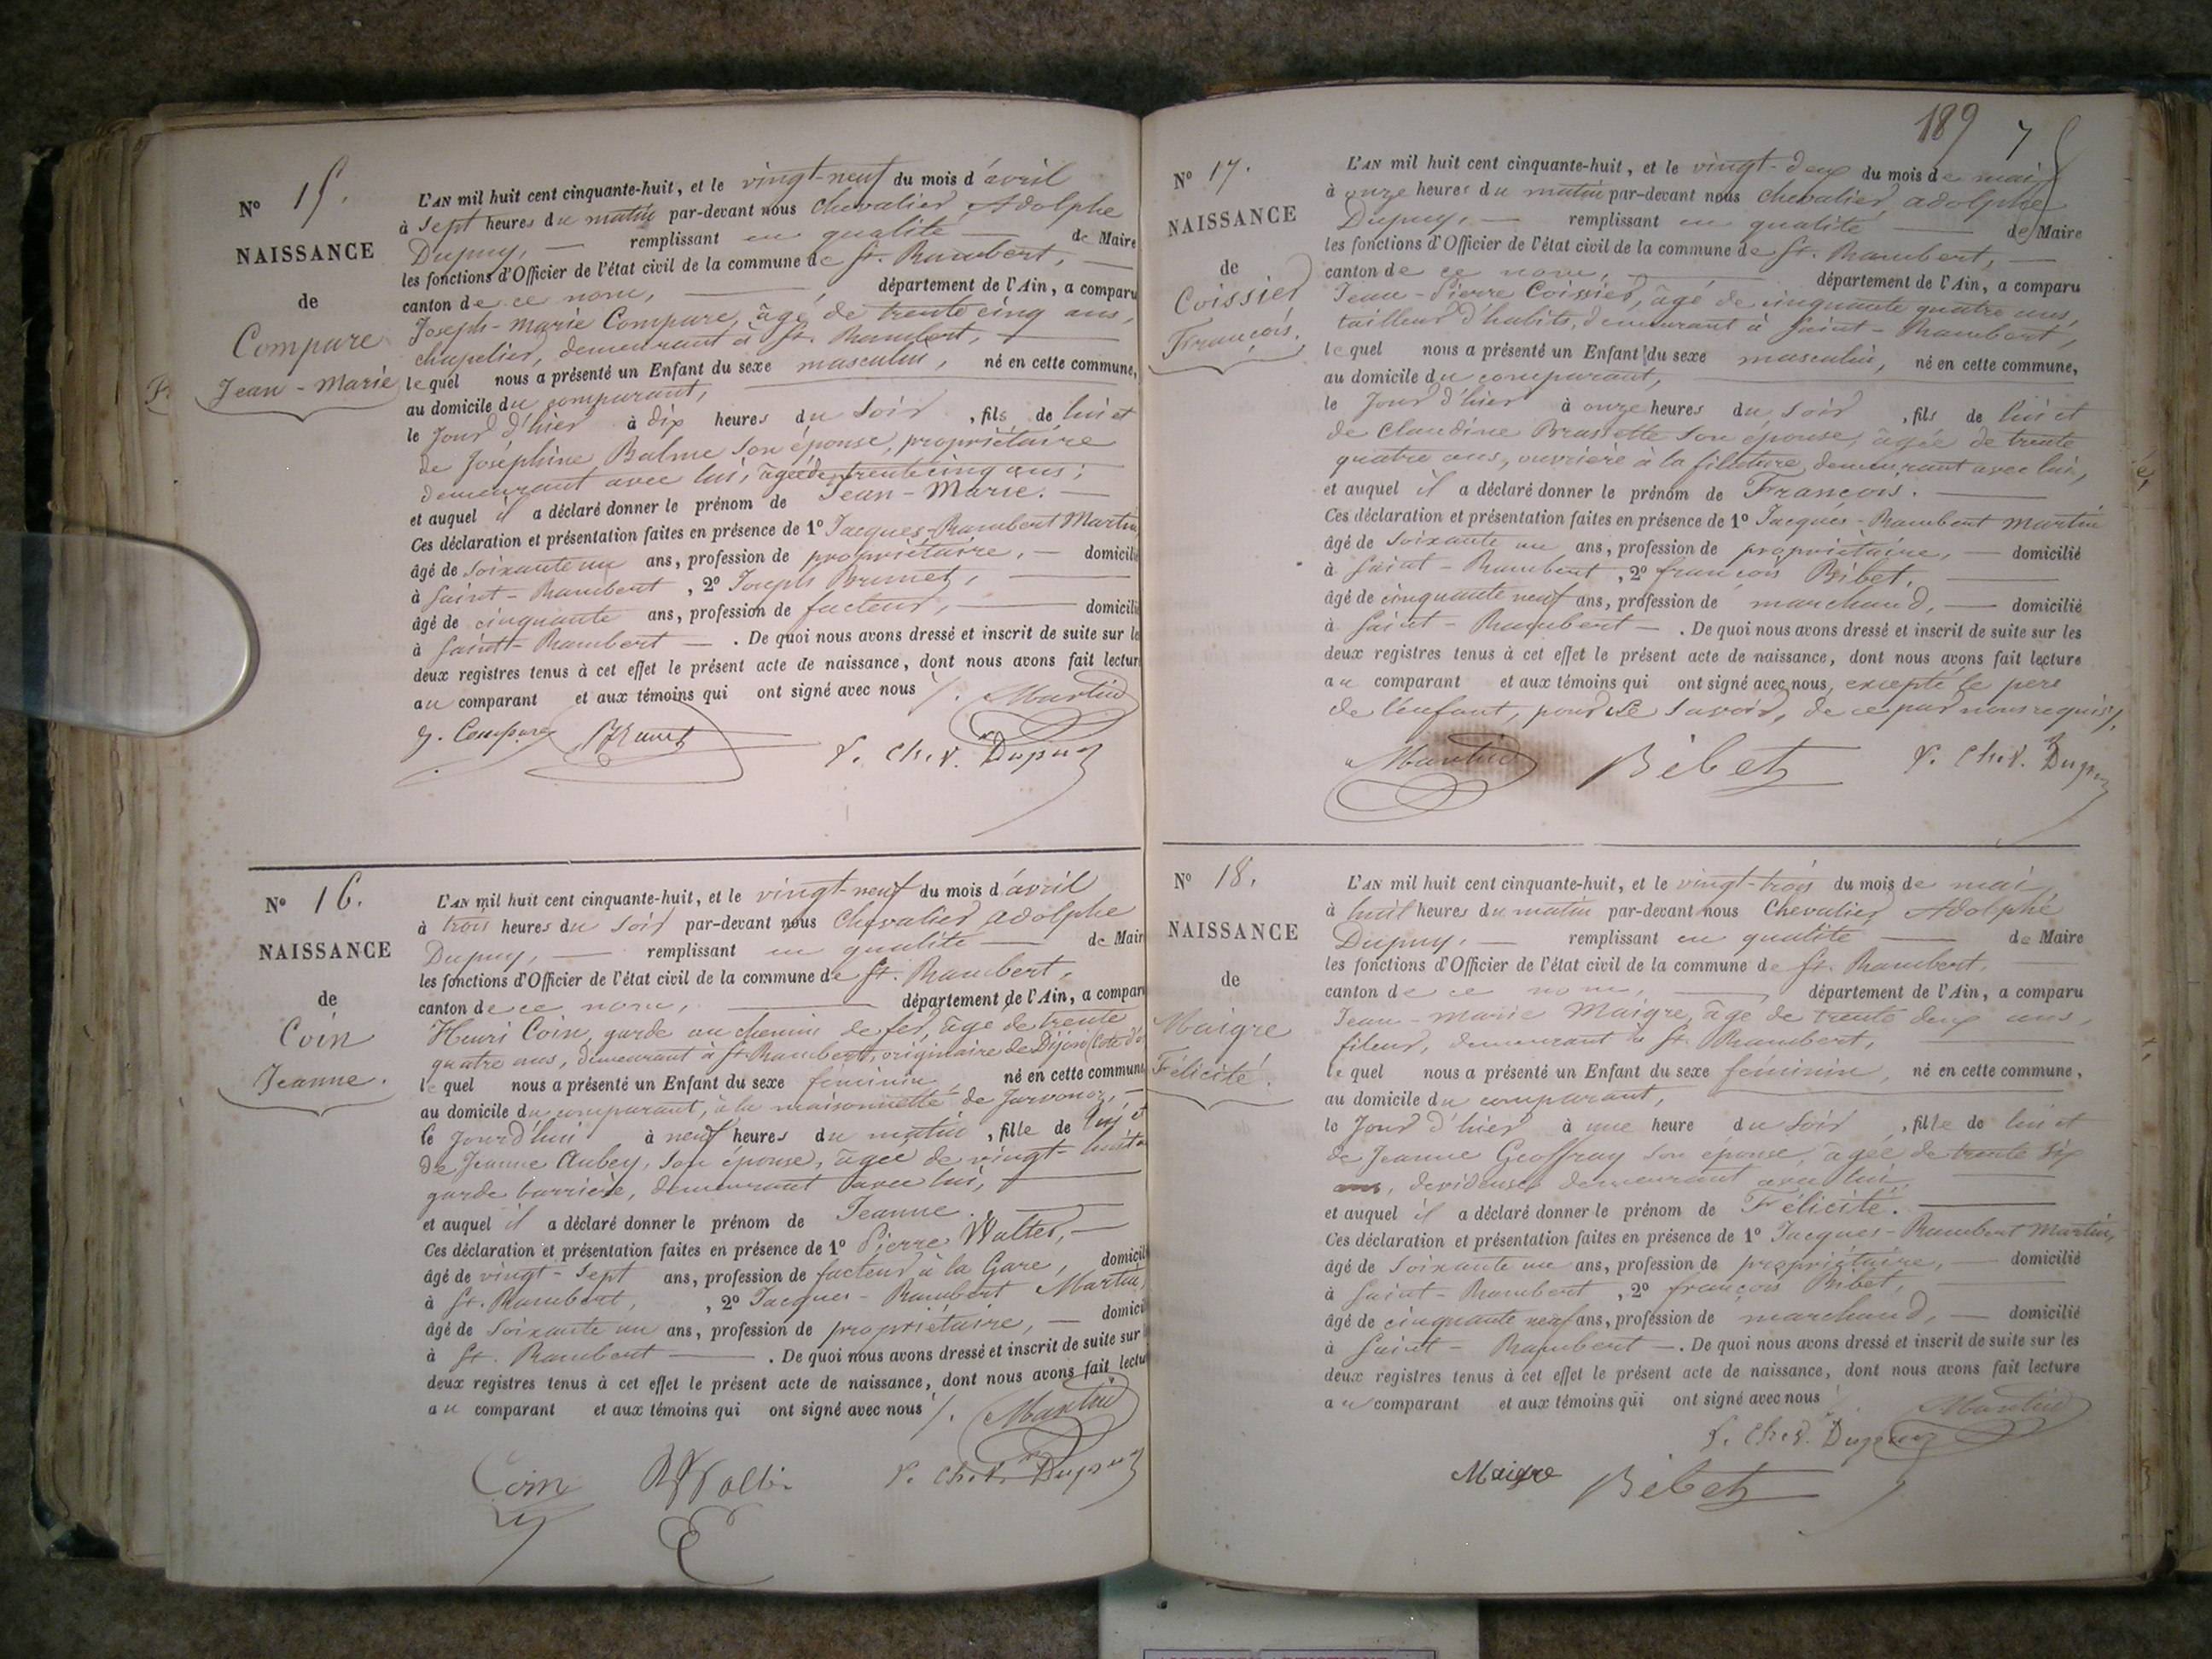 N° 15.
NAISSANCE
de
Compare
Jean-Marie
L'AN mil huit cent cinquante-huit, et le vingt-neuf du mois d'avril
à sept heures du matin par-devant nous chevalier Adolphe
Dupuy, — remplissant en qualité — de Maire
les fonctions d'Officier de l'état civil de la commune de St. Rambert, —
canton de ce nom, — département de l'Ain, a comparu
Joseph-Marie Compare, âgé de trente cinq ans,
chapelier, demeurant à St. Rambert, —
lequel nous a présenté un Enfant du sexe masculin, né en cette commune,
au domicile du comparant, —
le jour d'hier à dix heures du soir, fils de lui et
de Joséphine Balme son épouse, propriétaire
demeurant avec lui, âgée de trente cinq ans;
et auquel il a déclaré donner le prénom de Jean-Marie. —
Ces déclaration et présentation faites en présence de 1° Jacques-Rambert Martin
âgé de soixante un ans, profession de propriétaire, — domicilié
à Saint-Rambert, 2° Joseph Brunet, —
âgé de cinquante ans, profession de facteur, — domicilié
à Saint-Rambert —. De quoi nous avons dressé et inscrit de suite sur le
deux registres tenus à cet effet le présent acte de naissance, dont nous avons fait lectur
au comparant et aux témoins qui ont signé avec nous /. Martin
J. Compare Brunet
Chev. Dupuy
N° 16.
NAISSANCE
de
Coin
Jeanne.
L'AN mil huit cent cinquante-huit, et le vingt-neuf du mois d'avril
à trois heures du soir par-devant nous Chevalier Adolphe
Dupuy, — remplissant en qualité — de Mair
les fonctions d'Officier de l'état civil de la commune de St. Rambert,
canton de ce nom, — département de l'Ain, a compar
Henri Coin, garde au chemin de fer, âgé de trente
quatre ans, demeurant à St. Rambert, originaire de Dijon (Côte d'or
lequel nous a présenté un Enfant du sexe féminin, né en cette commune
au domicile du comparant, à la maisonnette de —
le jourd'hui à neuf heures du matin, fille de lui et
de Jeanne Aubey, son épouse, âgée de vingt-huit
garde barrière, demeurant avec lui, —
et auquel il a déclaré donner le prénom de Jeanne. —
Ces déclaration et présentation faites en présence de 1° Pierre Walter, —
âgé de vingt-sept ans, profession de facteur à la Gare, domicil
à St. Rambert, , 2° Jacques-Rambert Martin,
âgé de soixante un ans, profession de propriétaire, — domici
à St. Rambert —. De quoi nous avons dressé et inscrit de suite sur
deux registres tenus à cet effet le présent acte de naissance, dont nous avons fait lectu
au comparant et aux témoins qui ont signé avec nous /. Martin
Coin Chev. Dupuy
189 7
N° 17.
NAISSANCE
de
Coissier
François.
L'AN mil huit cent cinquante-huit, et le vingt-deux du mois de mai
à onze heures du matin par-devant nous chevalier adolphe
Dupuy, — remplissant en qualité — de Maire
les fonctions d'Officier de l'état civil de la commune de St. Rambert, —
canton de ce nom, — département de l'Ain, a comparu
Jean-Pierre Coissier, âgé de cinquante quatre ans,
tailleur d'habits, demeurant à Saint-Rambert,
lequel nous a présenté un Enfant du sexe masculin, né en cette commune,
au domicile du comparant, —
le jour d'hier à onze heures du soir, fils de lui et
de Claudine Brassette son épouse, âgée de trente
quatre ans, ouvrière à la filature, demeurant avec lui,
et auquel il a déclaré donner le prénom de François. —
Ces déclaration et présentation faites en présence de 1° Jacques-Rambert Martin
âgé de soixante un ans, profession de propriétaire, — domicilié
à Saint-Rambert, 2° françois Bibet, —
âgé de cinquante neuf ans, profession de marchand, — domicilié
à Saint-Rambert —. De quoi nous avons dressé et inscrit de suite sur les
deux registres tenus à cet effet le présent acte de naissance, dont nous avons fait lecture
au comparant et aux témoins qui ont signé avec nous, excepté le père
de l'enfant, pour ne le savoir, de ce par nous requis /.
Martin Bibet Chev. Dupuy
N° 18.
NAISSANCE
de
Maigre
Félicité.
L'AN mil huit cent cinquante-huit, et le vingt-trois du mois de mai,
à huit heures du matin par-devant nous Chevalier Adolphe
Dupuy, — remplissant en qualité — de Maire
les fonctions d'Officier de l'état civil de la commune de St. Rambert,
canton de ce nom, — département de l'Ain, a comparu
Jean-Marie Maigre, âgé de trente deux ans,
fileur, demeurant à St. Rambert, —
lequel nous a présenté un Enfant du sexe féminin, né en cette commune,
au domicile du comparant, —
le jour d'hier à une heure du soir, fille de lui et
de Jeanne Geoffray son épouse, âgée de trente six
ans, devideuse demeurant avec lui, —
et auquel il a déclaré donner le prénom de Félicité. —
Ces déclaration et présentation faites en présence de 1° Jacques-Rambert Martin,
âgé de soixante un ans, profession de propriétaire, — domicilié
à Saint-Rambert, 2° françois Bibet, —
âgé de cinquante neuf ans, profession de marchand, — domicilié
à Saint-Rambert —. De quoi nous avons dressé et inscrit de suite sur les
deux registres tenus à cet effet le présent acte de naissance, dont nous avons fait lecture
au comparant et aux témoins qui ont signé avec nous
Martin
Chev. Dupuy
Maigre Bibet